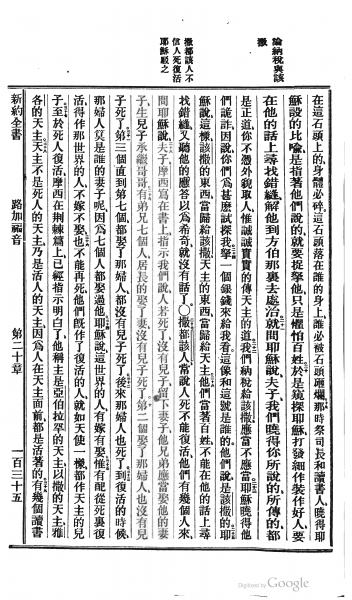 論納稅與該
撒
撒都該人不
信人死復活
耶穌駁之
在這石頭上的、身體必碎、這石頭落在誰的身上、誰必被石頭砸爛、那時祭司長和讀書人曉得耶
穌設的比喻、是指著他們說的、就要捉拏他、只是懼怕百姓、於是窺探耶穌、打發細作、裝作好人、要
在他的話上尋找錯縫、解他到方伯那裏去處治、就問耶穌說、夫子、我們曉得你所說的、所傳的、都
是正道、你不憑外貌取人、惟誠誠實實的傳天主的道、我們納稅給該撒、應當不應當、耶穌曉得他
們詭詐、因說、你們爲甚麼試探我、拏一個銀錢來給我看、這像和這號是誰的、他們說、是該撒的、耶
穌說、這樣、該撒的東西當歸給該撒、天主的東西、當歸給天主、他們當著百姓不能在他的話上尋
找錯縫、又聽他的應答、以爲希奇、就沒有話了○撒都該人常說人死不能復活、他們有幾個人來、
問耶穌說、夫子、摩西寫在書上、指示我們說、人若死了、沒有兒子、留下妻子、他兄弟應當娶他的妻
子、生兒子承繼哥哥、有弟兄七個人、居長的娶了妻、沒有兒子死了、第二個娶了那婦人、也沒有兒
子死了、第三個直到第七個、都娶了那婦人、都沒有兒子死了、後來那婦人也死了、到復活的時候、
那婦人算是誰的妻子呢、因爲七個人都娶過他、耶穌說、這世界的人、有嫁有娶、惟有配從死裏復
活得作那世界的人、不嫁不娶、也不能再死、他們旣作了復活的人、就如天使一樣、都作天主的兒
子、至於死人復活、摩西在荊棘篇上、已經指示明白了、他稱主是亞伯拉罕的天主、以撒的天主、雅
各的天主、天主不是死人的天主、乃是活人的天主、因爲人在天主面前、都是活著的、有幾個讀書
新約全書 路加福音 第二十章 一百三十五
Digitized by Google